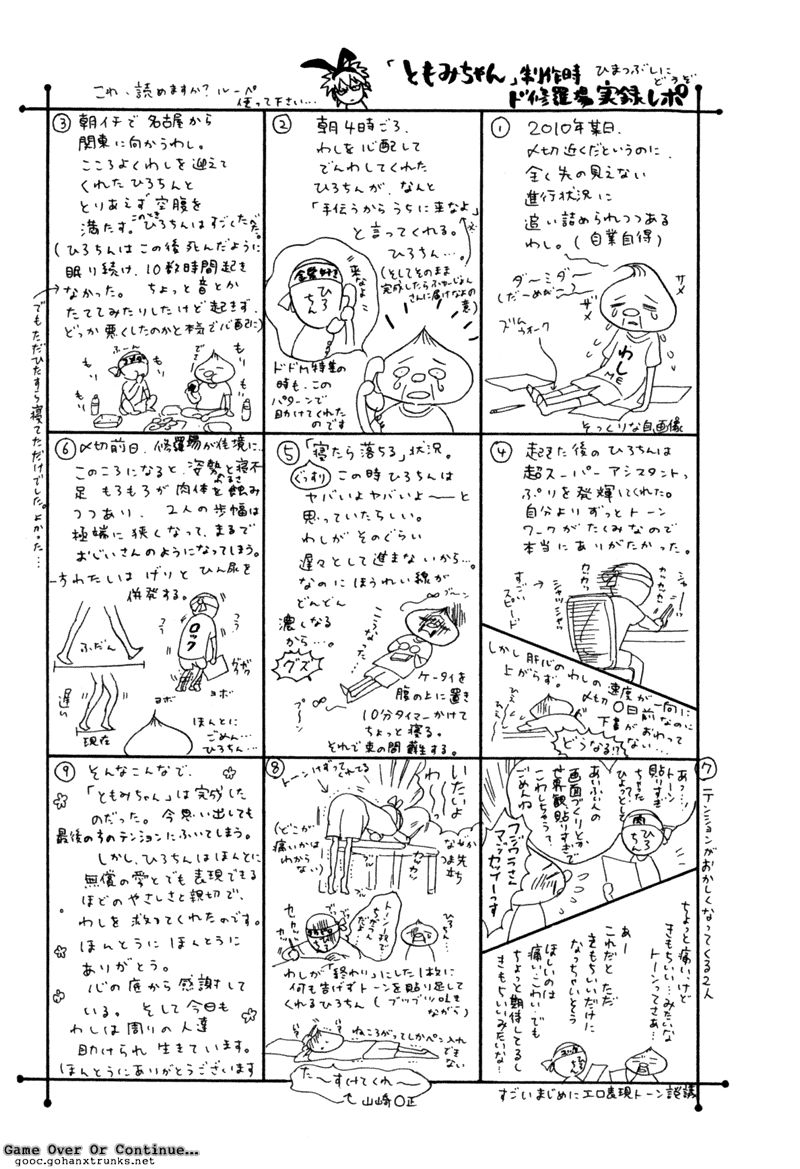 「ともみちゃん」制作時
ド修羅場 実録レポ
ひまつぶしに
どうぞ
これ、読めますか？ルーペ
使って下さい…
① 2010年某日、
〆切近くだというのに、
全く先の見えない
進行状況に
追い詰められつつある
わし。(自業自得)
ダ〜ミ、ダ〜
(だーめだー)
ザメ
ザメ
わし
ME
そっくりな自画像
② 朝4時ごろ、
わしを心配して
でんわしてくれた
ひろちんが、なんと
「手伝うからうちに来なよ」
と言ってくれる。
ひろちん…。
来なよ
ひろちん
ドドM特集の
時も、この
パターンで
助けてくれた
のです
③ 朝イチで名古屋から
関東に向かうわし。
こころよくわしを迎えて
くれたひろちんと
とりあえず空腹を
満たす。このときひろちんはすごしただ。
(ひろちんはこの後死んだように
眠り続け、10数時間起き
なかった。 ちょっと音とか
たててみたりしたけど起きず、
どっか悪くしたのかと本当に心配に)
でもただひたすら寝てただけでした。よかった…
ふーん
もり
もり
もり
でで
④ 起きた後のひろちんは
超スーパーアシスタントっ
ぷりを発揮してくれた。
自分よりずっとトーン
ワークがたくみなので
本当にありがたかった。
すごい
スピード
シャッシャッ
カカカッ
しかし肝心のわしの速度が一向に
上がらず。
〆切〇日前なのに
下書がおわって
ない…
どうなる!?
⑤ 「寝たら落ちる」状況。
ぐっすり
この時ひろちんは
ヤバいよヤバいよ〜〜と
思っていたらしい。
わしがそのぐらい
遅々として進まないから…。
なのにほうれい線が
どんどん
濃くなる
から…。
グズ
こうなった
ケータイを
腹の上に置き
10分タイマーかけて
ちょっと寝る。
それで束の間蘇生する。
⑥ 〆切前日、修羅場が佳境に…
このころになると、姿勢の悪さと寝不
足 もろもろが肉体を蝕み
つつあり、 2人の歩幅は
極端に狭くなって、まるで
おじいさんのようになってしまう。
わたしはげりとひん尿を
併発する。
ふだん
遅い
現在
ロック
ヨボ
ヨボ
ほんとに
ごめん…
ひろちん…
⑦ テンションがおかしくなってくる2人
あっ…
トーン
貼りすぎ
ちゃた
ひょっとして
あいぶぅんの
画面づくりとか
世界観、貼りすぎで
こわしちゃうって
ごめんね
肉
ひろちん
フジワラさん
マジッセツーっす
ちょっと痛いけど
きもちいい…みたいな
トーンってさぁ…
あー
これだとただ
きもちいいだけに
なっちゃいそう
ほしいのは
痛い、こわい、でも
ちょっと期待してるし
きもちいいみたいな…
すごいまじめにエロ表現トーン談議
⑧ トーンけずってれてる
いたいよ
わ
(どこが
痛いかは
わから
ない)
なぜか
つま先
立ち
ひろちん…
わしが「終わり」にした1枚に
何も告げずトーンを貼り足して
くれるひろちん (ブツブツ呟き
ながら)
ねころがってしかペン入れ
できない
た〜すけてくれ〜
山崎〇正
⑨ そんなこんなで、
「ともみちゃん」は完成した
のだった。今思い出しても
最後の方のテンションにふいてしまう。
しかし、ひろちんはほんとに
無償の愛とでも表現できる
ほどのやさしさと親切で、
わしを救ってくれたのです。
ほんとうにほんとうに
ありがとう。
心の底から感謝して
いる。 そして今日も
わしは周りの人達
助けられ生きています。
ほんとうにありがとうございます
Game Over Or Continue...
gooc.gohanxtrunks.net